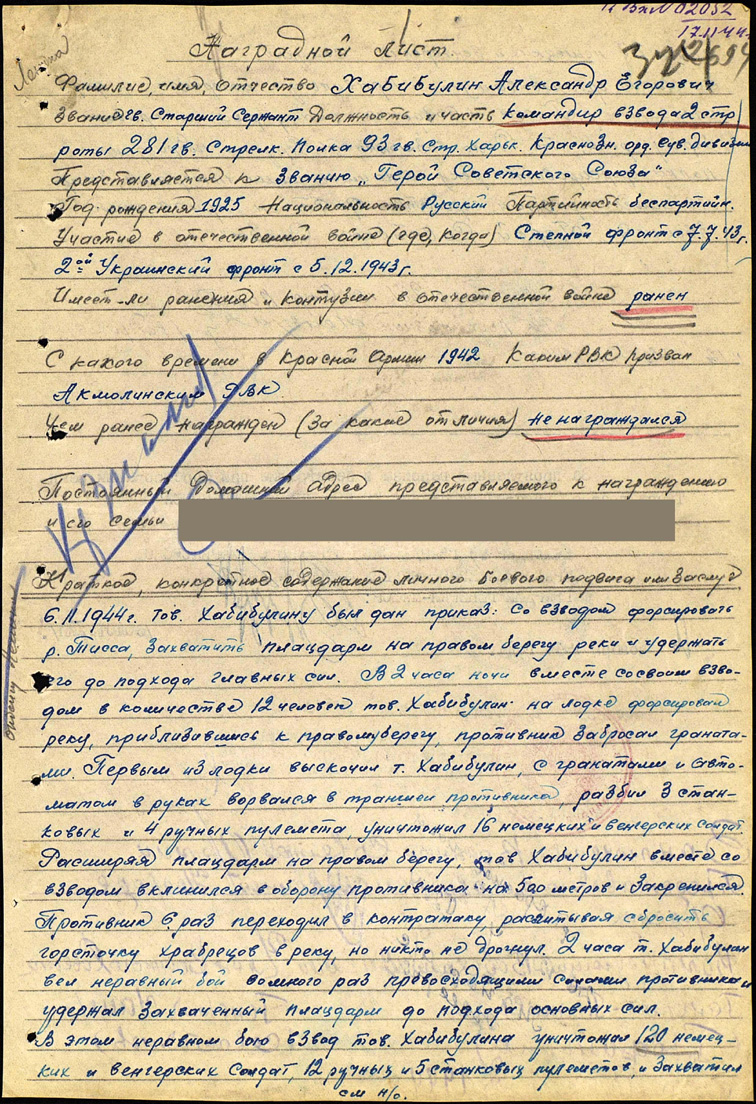 Вх № 02032
17.11.44
Наградной Лист.
Фамилие, имя, отчество Хабибулин Александр Егорович
Звание гв. Старший Сержант Должность и часть Командир взвода 2 стр
роты 281 гв. Стрелк. Полка 93 гв. Стр. Харьк. Краснозн. орд. Сув. дивизии
Представляется к званию „Герой Советского Союза"
Год рождения 1925 Национальность Русский Партийность беспартийн.
Участие в отечественной войне (где, когда) Степной фронт с 7.7.43 г.
2ой Украинский фронт с 5.12.1943 г.
Имеет-ли ранения и контузии в отечественной войне ранен
С какого времени в Красной Армии 1942 Каким РВК призван
Акмолинским РВК
Чем ранее награжден (за какие отличия) Не награждался
Постоянный Домашний адрес представляемого к награждению
и его семьи
Краткое, конкретное содержание личного боевого подвига или Заслуг
6.11.1944 г. тов. Хабибулину был дан приказ: со взводом форсировать
р. Тисса, Захватить плацдарм на правом берегу реки и удержать
его до подхода главных сил. В 2 часа ночи вместе со своим взво-
дом в количестве 12 человек тов. Хабибулин на лодке форсировал
реку, приблизившись к правому берегу, противник забросал граната-
ми. Первым из лодки выскочил т. Хабибулин, с гранатами и авто-
матом в руках ворвался в траншеи противника, разбил 3 стан-
ковых и 4 ручных пулемета, уничтожил 16 немецких и венгерских солдат.
Расширяя плацдарм на правом берегу, тов Хабибулин вместе со
взводом вклинился в оборону противника на 500 метров и Закрепился
Противник 6 раз переходил в контратаку, расчитывая сбросить
горсточку храбрецов в реку, но никто не дрогнул. 2 часа т. Хабибулин
вел неравный бой со много раз превосходящими силами противника и
удержал Захваченный плацдарм до подхода основных сил.
В этом неравном бою взвод тов. Хабибулина уничтожил 120 немец-
ких и венгерских солдат, 12 ручных и 5 станковых пулеметов, и Захватил
см н/о.